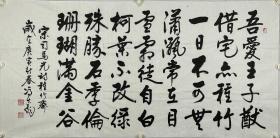 吾愛王子猷
借宅亦種竹
一日不可無
瀟灑常在目
雪霜徒自白
柯葉不改綠
殊勝石季倫
珊瑚滿金谷
宋司馬光詩種竹齋
歲在庚寅新春